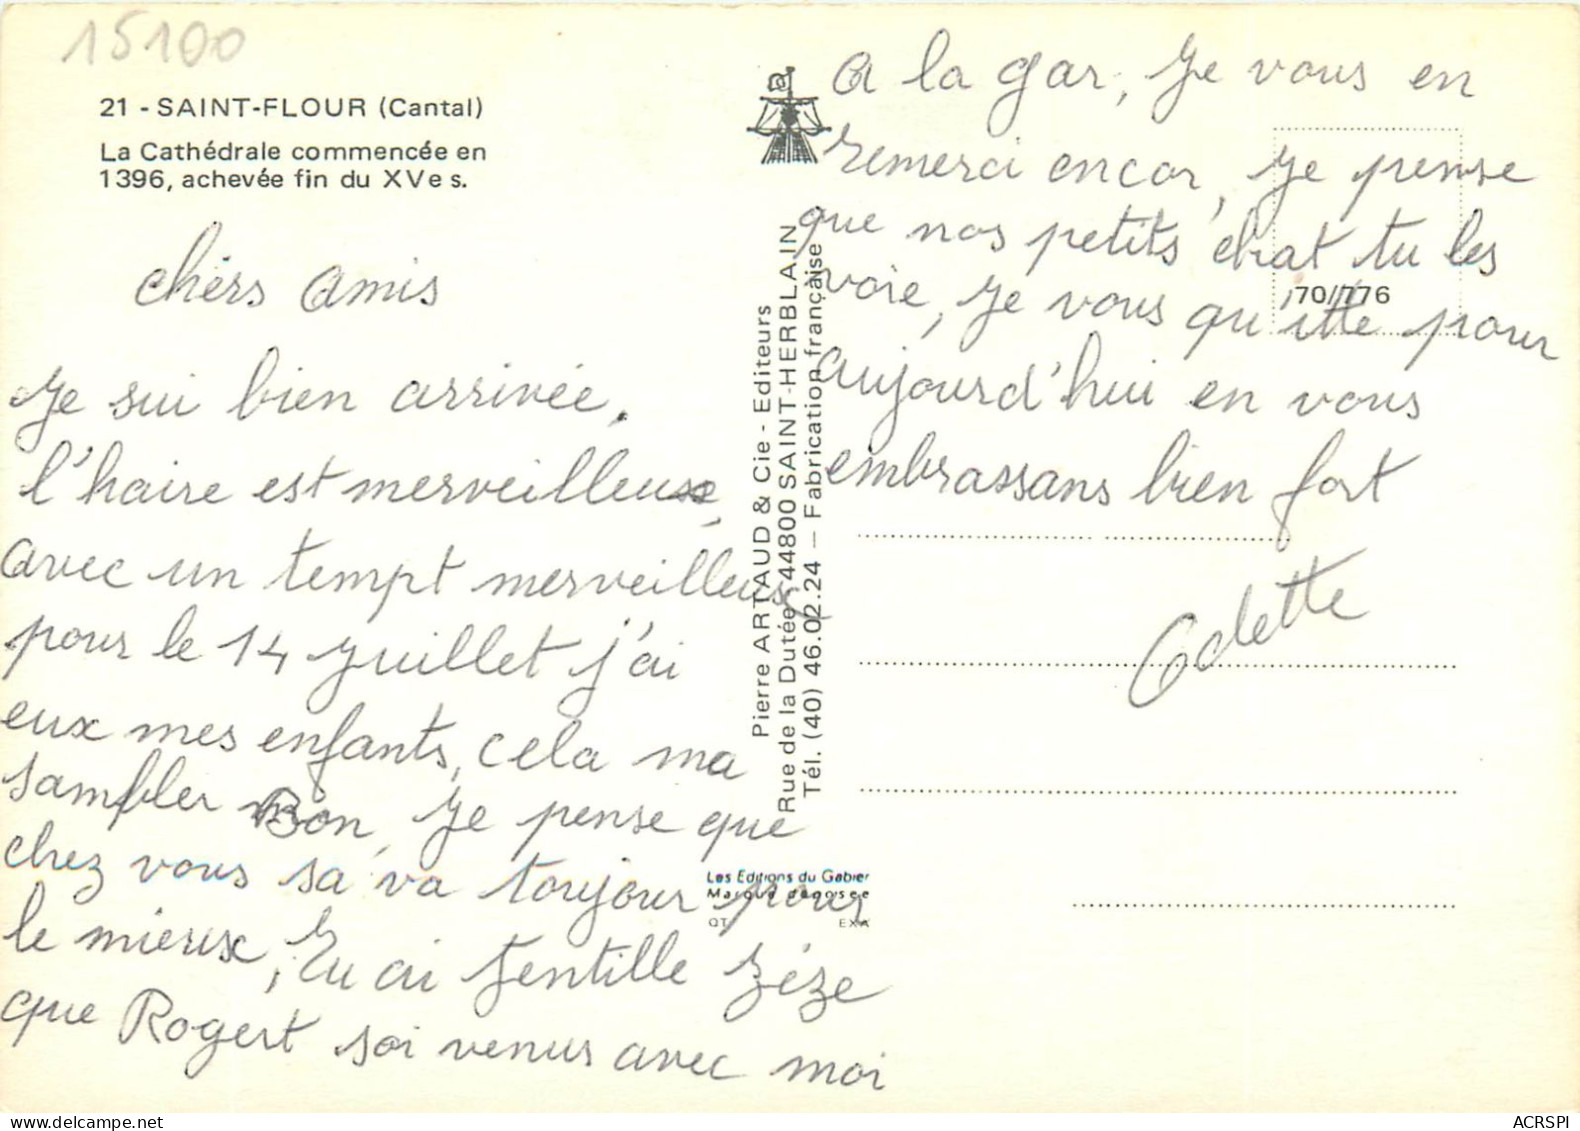 15100
21 - SAINT-FLOUR (Cantal)
La Cathédrale commencée en
1396, achevée fin du XVe s.
chèrs amis
Je sui bien arrivée.
l'haire est merveilleuse,
avec un tempt merveilleux
pour le 14 Juillet j'ai
eux mes enfants, cela ma
sambler Bon, Je pense que
chez vous sa va toujour pour
le mieux, tu ai Jentille Zéze
que Rogert soi venus avec moi
A la gar, Je vous en
remerci encor, Je pense
que nos petits chat tu les
voie, Je vous qu'itte pour
aujourd'hui en vous
embrassans bien fort
Odette
Pierre ARTAUD & Cie - Editeurs
Rue de la Dutée 44800 SAINT-HERBLAIN
Tél. (40) 46.02.24 — Fabrication française
70/776
Les Editions du Gabier
Marque déposée
QT EXA
ACRSPI